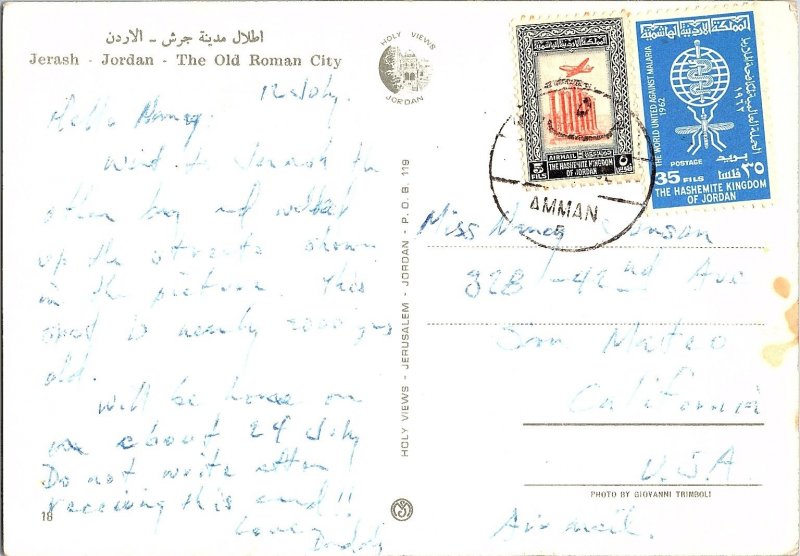 اطلال مدينة جرش - الاردن
Jerash - Jordan - The Old Roman City
HOLY VIEWS
JORDAN
12 July.
Hello
Went to Jerash the
other day and walked
up the streets shown
in the picture. This
is nearly 2000 yrs
old.
Will be home on
or about 24 July
Do not write after
receiving this card!!
Love
Daddy
18
HOLY VIEWS - JERUSALEM - JORDAN - P.O.B. 119
المملكة الاردنية الهاشمية
AIRMAIL
5
FILS
THE HASHEMITE KINGDOM
OF JORDAN
AMMAN
المملكة الاردنية الهاشمية
THE WORLD UNITED AGAINST MALARIA
1962
الحملة العالمية لمكافحة الملاريا
١٩٦٢
POSTAGE
بريد
35 FILS
٣٥ فلسا
THE HASHEMITE KINGDOM
OF JORDAN
Miss Nancy
328 - 42nd Ave
San Mateo
California
U.S.A.
PHOTO BY GIOVANNI TRIMBOLI
Air mail.